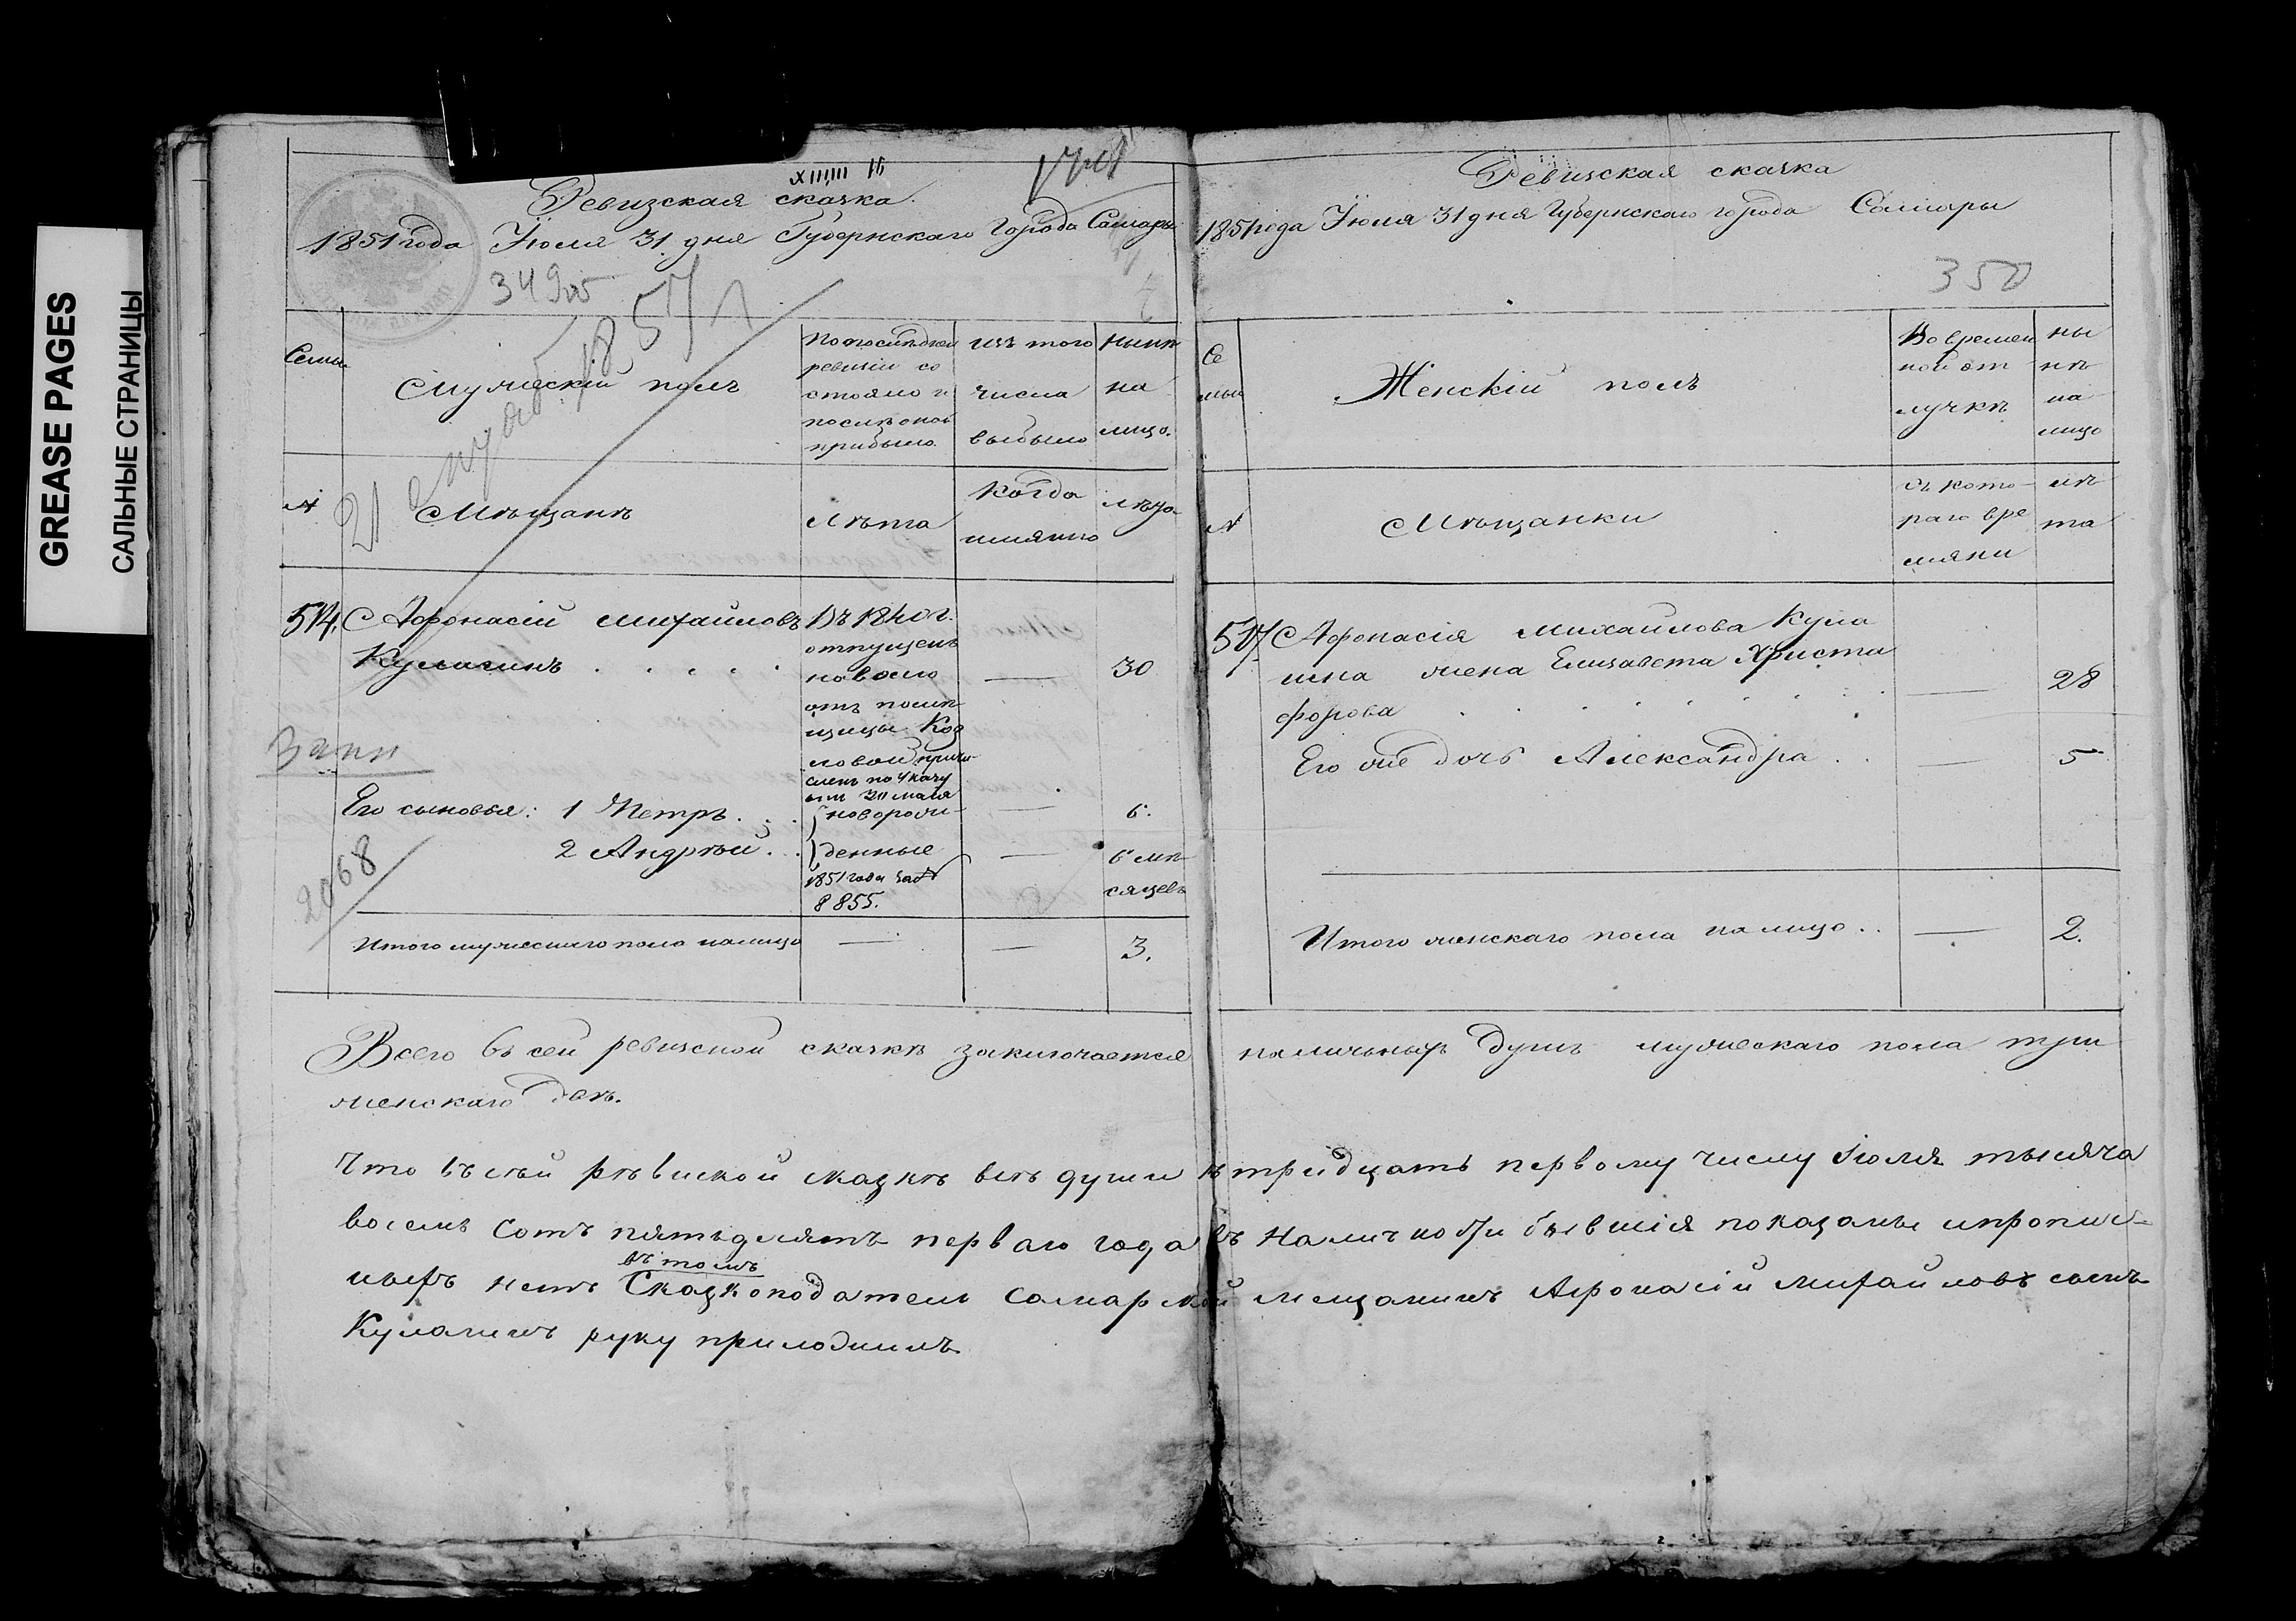 GREASE PAGES
САЛЬНЫЕ СТРАНИЦЫ
Ревизская сказка.
1851 года Июля 31 дня Губернскаго Города Самары
349
1857
Семьи
Мужескій полъ
По последней
ревизіи со
стояло и
после оной
прибыло.
изъ того
числа
выбыло
ныне
на
лицо.
№
21
Мѣщанѣ
лѣта
Когда
имянно
лѣта
514. Афонасій Михайловъ
Кулагинъ . . . .
Въ 1840 г.
отпущенъ
на волю
отъ помѣ
щицы Коз
ловой причи
сленъ по указу
30 мая
— 30
Его сыновья: 1 Петръ . . .
новорож
— 6.
2 Андрѣй . .
денные
— 6 мѣ
сяцевъ
1851 года
8855.
2068
Итого мужескаго пола налицо — — 3.
Ревизская сказка
1851 года Июля 31 дня Губернскаго города Самары
350
Се
мьи
Женскій полъ
Во времен
ной от
лучкѣ
ны
нѣ
на
лицо
№
Мѣщанки
съ кото-
раго вре
мяни
лѣ
та
517. Афонасія Михайлова Кула
гина жена Елизавета Христа
форова . . . . . . — 28
Его же дочь Александра . . — 5
Итого женскаго пола на лицо . . — 2.
Всего въ сей ревизской сказкѣ заключается наличныхъ душъ мужескаго пола три
женскаго двѣ.
Что въ сѣй рѣвиской сказкѣ всѣ души к тридцать первому числу Іюля тысяча
восемь сотъ пятьдесятъ перваго года въ наличности бывшія показаны и пропис-
ныхъ нетъ въ томъ Сказкоподатель Самарской мещанинъ Афонасій Михайловъ сынъ
Кулагинъ руку приложилъ